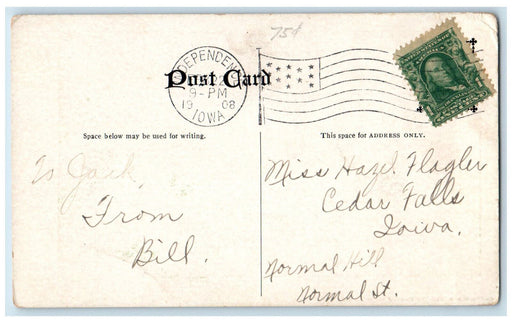 75¢
INDEPENDENCE
22
9-PM
1908
IOWA
Post Card
Space below may be used for writing.
This space for ADDRESS ONLY.
To Jack,
From
Bill.
Miss Hazel Flagler
Cedar Falls
Iowa.
Normal Hill
Normal St.